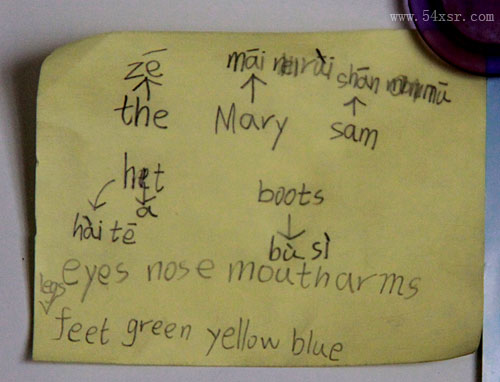 www.54xsr.com
zē māi rùi shān mā
the Mary sam
hat boots
a
hài tē bù sì
eyes nose moutharms
legs
feet green yellow blue